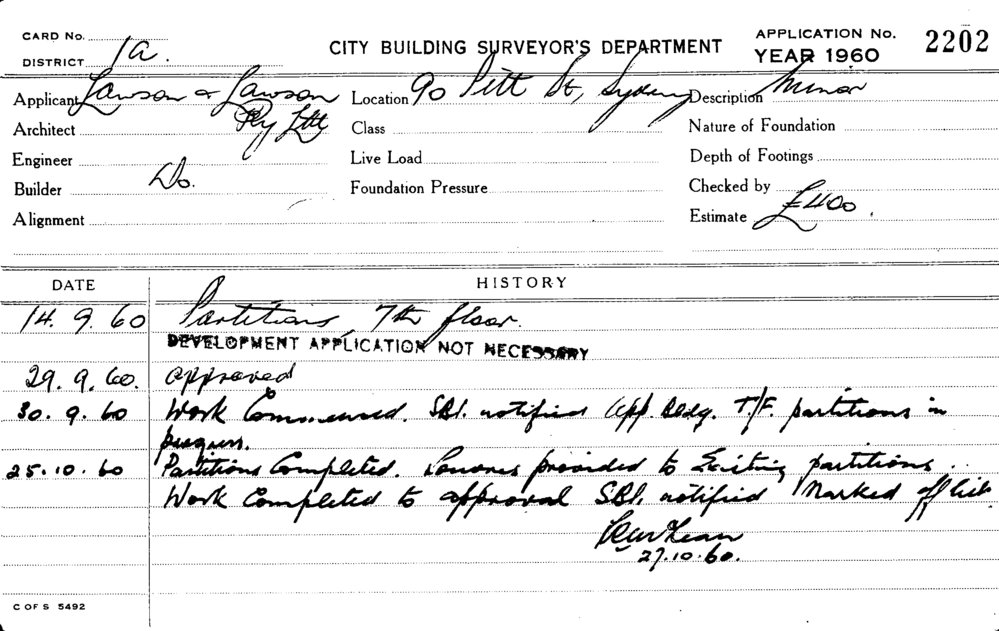 CARD No.
CITY BUILDING SURVEYOR'S DEPARTMENT
APPLICATION No. 2202
YEAR 1960
DISTRICT 1a.
Applicant Lawson & Lawson Pty Ltd
Location 90 Pitt St, Sydney
Description Minor
Architect
Class
Nature of Foundation
Engineer
Live Load
Depth of Footings
Builder Do.
Foundation Pressure
Checked by
Alignment
Estimate £400.
DATE HISTORY
14.9.60 Partitions, 7th floor.
DEVELOPMENT APPLICATION NOT NECESSARY
29.9.60. approved
30.9.60 Work Commenced. SBI. notified Bldg. T/F. partitions in
progress.
25.10.60 Partitions Completed. Louvres provided to Existing partitions.
Work Completed to approval SBI. notified Marked off list
27.10.60.
C OF S 5492